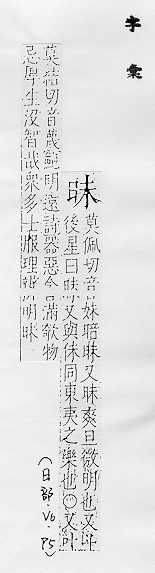 字彙
昧
莫佩切音妹暗昧又昧爽旦微明也又斗
後星曰昧又與佅同東夷之樂也○又叶
莫結切音蔑鮑明遠詩器惡含滿欹物
忌厚生沒智哉衆多士服理辨明昧
(日部.V6.P5)